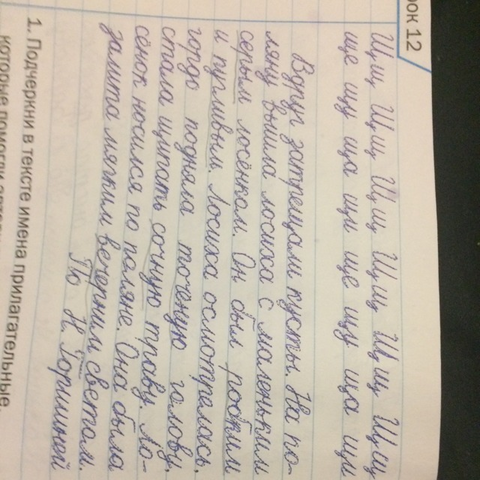 рок 12
Щщ Щщ Щщ Щщ Щщ Щщ
ще щу ща щи ще щу ща щи
Вдруг затрещали кусты. На по-
ляну вышла лосиха с маленьким
серым лосёнком. Он был робким
и пугливым. Лосиха осмотрелась,
гордо подняла точёную голову,
стала щипать сочную траву. Ло-
сёнок носился по поляне. Она была
залита мягким вечерним светом.
По Н.
1. Подчеркни в тексте имена прилагательные,
которые помогли